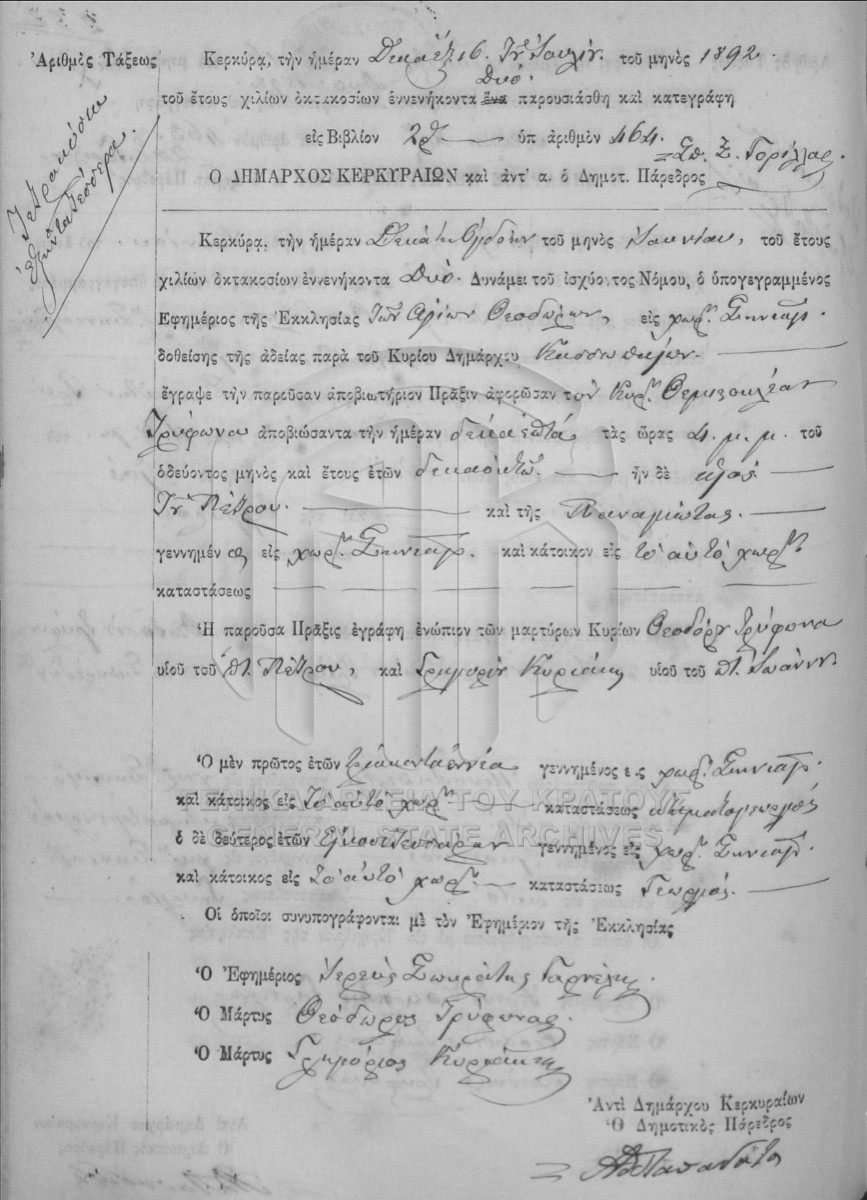 Ἀριθμὸς Τάξεως
Τετρακόσια
ἑξῆντα τέσσερα.
Κερκύρᾳ, τὴν ἡμέραν Δεκαέξ 16 Ἰουλίου τοῦ μηνὸς 1892
Δύο
τοῦ ἔτους χιλίων ὀκτακοσίων ἐννενήκοντα ἕνα παρουσιάσθη καὶ κατεγράφη
εἰς Βιβλίον 2ον ὑπ ἀριθμὸν 464.
Ο ΔΗΜΑΡΧΟΣ ΚΕΡΚΥΡΑΙΩΝ καὶ ἀντ' α. ὁ Δημοτ. Πάρεδρος
Κερκύρᾳ, τὴν ἡμέραν Δεκάτην Ὀγδόην τοῦ μηνὸς Ἰουνίου, τοῦ ἔτους
χιλίων ὀκτακοσίων ἐννενήκοντα Δυό. Δυνάμει τοῦ ἰσχύοντος Νόμου, ὁ ὑπογεγραμμένος
Ἐφημέριος τῆς Ἐκκλησίας Τῶν Ἁγίων Θεοδώρων, εἰς χωρ. Σηνιαῖς.
δοθείσης τῆς ἀδείας παρὰ τοῦ Κυρίου Δημάρχου Κασσωπαίων.
ἔγραψε τὴν παροῦσαν ἀποβιωτήριον Πρᾶξιν ἀφορῶσαν τον Κυρ. Θεμιστοκλέαν
Τρύφωνα ἀποβιώσαντα τὴν ἡμέραν δεκαεπτά τὰς ὥρας 4. μ. μ. τοῦ
ὁδεύοντος μηνὸς καὶ ἔτους ἐτῶν δεκαοκτώ. ἦν δὲ υἱός
Του Πέτρου. καὶ τῆς Παναγιώτας.
γεννημένος εἰς χωρ. Σηνιαῖς. καὶ κάτοικον εἰς το αὐτὸ χωρ.
καταστάσεως
Ἡ παροῦσα Πρᾶξις ἐγράφη ἐνώπιον τῶν μαρτύρων Κυρίων Θεοδώρου Τρύφωνα
υἱοῦ τοῦ Πέτρου, καὶ Γρηγορίου Κυριάκη υἱοῦ τοῦ Ἰωάνν.
Ὁ μὲν πρῶτος ἐτῶν τριακονταεννέα γεννημένος εἰς χωρ. Σηνιαῖς.
καὶ κάτοικος εἰς το αὐτὸ χωρ. καταστάσεως κτηματογεωργός
ὁ δὲ δεύτερος ἐτῶν εἰκοσιτεσσάρων γεννημένος εἰς χωρ. Σηνιαῖς.
καὶ κάτοικος εἰς το αὐτὸ χωρ. καταστάσεως Γεωργός.
Οἱ ὁποῖοι συνυπογράφονται μὲ τὸν Ἐφημέριον τῆς Ἐκκλησίας
Ὁ Ἐφημέριος Ἱερεὺς Σωκράτης
Ὁ Μάρτυς Θεόδωρος Τρύφωνας
Ὁ Μάρτυς Γρηγόριος Κυριάκης
Ἀντὶ Δημάρχου Κερκυραίων
Ὁ Δημοτικὸς Πάρεδρος
ΓΕΝΙΚΑ ΑΡΧΕΙΑ ΤΟΥ ΚΡΑΤΟΥΣ
GENERAL STATE ARCHIVES